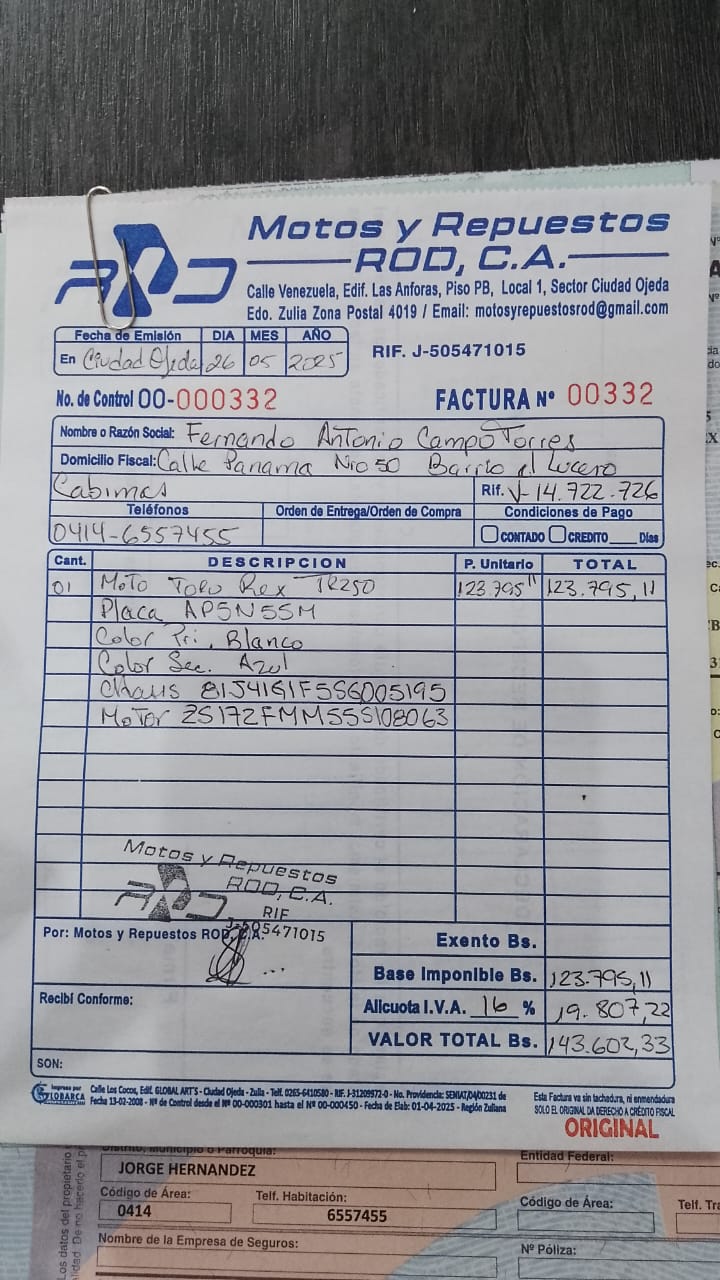 Motos y Repuestos
ROD, C.A.
Calle Venezuela, Edif. Las Anforas, Piso PB, Local 1, Sector Ciudad Ojeda
Edo. Zulia Zona Postal 4019 / Email: motosyrepuestosrod@gmail.com
Fecha de Emisión DIA MES AÑO
En Ciudad Ojeda 26 05 2025
RIF. J-505471015
No. de Control 00-000332 FACTURA Nº 00332
Nombre o Razón Social: Fernando Antonio Campo Torres
Domicilio Fiscal: Calle Panama Nro 50 Barrio el Lucero
Cabimas Rif. V-14.722.726
Teléfonos Orden de Entrega/Orden de Compra Condiciones de Pago
0414-6557455 CONTADO CREDITO Días
Cant. DESCRIPCION P. Unitario TOTAL
01 Moto Toro Rex TR250 123.795 11 123.795,11
Placa AP5N55M
Color Pri. Blanco
Color Sec. Azul
Chasis 81J41G1F5SG005195
Motor ZS172FMM5SS108063
Motos y Repuestos
ROD, C.A.
RIF
J-505471015
Por: Motos y Repuestos ROD, C.A.
Exento Bs.
Base Imponible Bs. 123.795,11
Recibí Conforme:
Alicuota I.V.A. 16 % 19.807,22
VALOR TOTAL Bs. 143.602,33
SON:
Impreso por
GLOBARCA
Calle Los Cocos, Edif. GLOBAL ART'S - Ciudad Ojeda - Zulia - Telf. 0265-6410580 - RIF. J-31209972-0 - No. Providencia: SENIAT/04/00231 de
Fecha 13-02-2008 - Nº de Control desde el Nº 00-000301 hasta el Nº 00-000450 - Fecha de Elab: 01-04-2025 - Región Zuliana
Esta Factura va sin tachadura, ni enmendadura
SOLO EL ORIGINAL DA DERECHO A CRÉDITO FISCAL
ORIGINAL
Distrito, Municipio o Parroquia: Entidad Federal:
JORGE HERNANDEZ
Código de Área: Telf. Habitación: Código de Área: Telf. Tra
0414 6557455
Nombre de la Empresa de Seguros: Nº Póliza:
Los datos del propietario